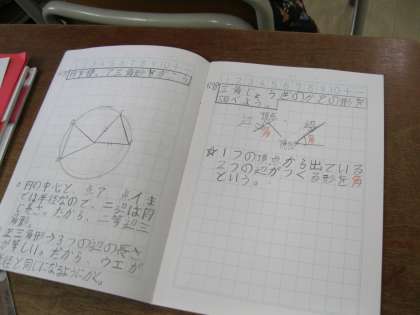 円を使って三角形をかこう
・円の中心と、点ア 点イま
では半径なので、二辺は同
じ長さ。だから、二等辺三
角形
正三角形→3つの辺の長さ
が等しい。だから、ウエが
半径と同じになるようにかく。
三角じょうぎのかどの形を
調べよう。
頂点
辺
角
辺
頂点
角
☆1つの頂点から出ている
2つの辺がつくる形を角
という。